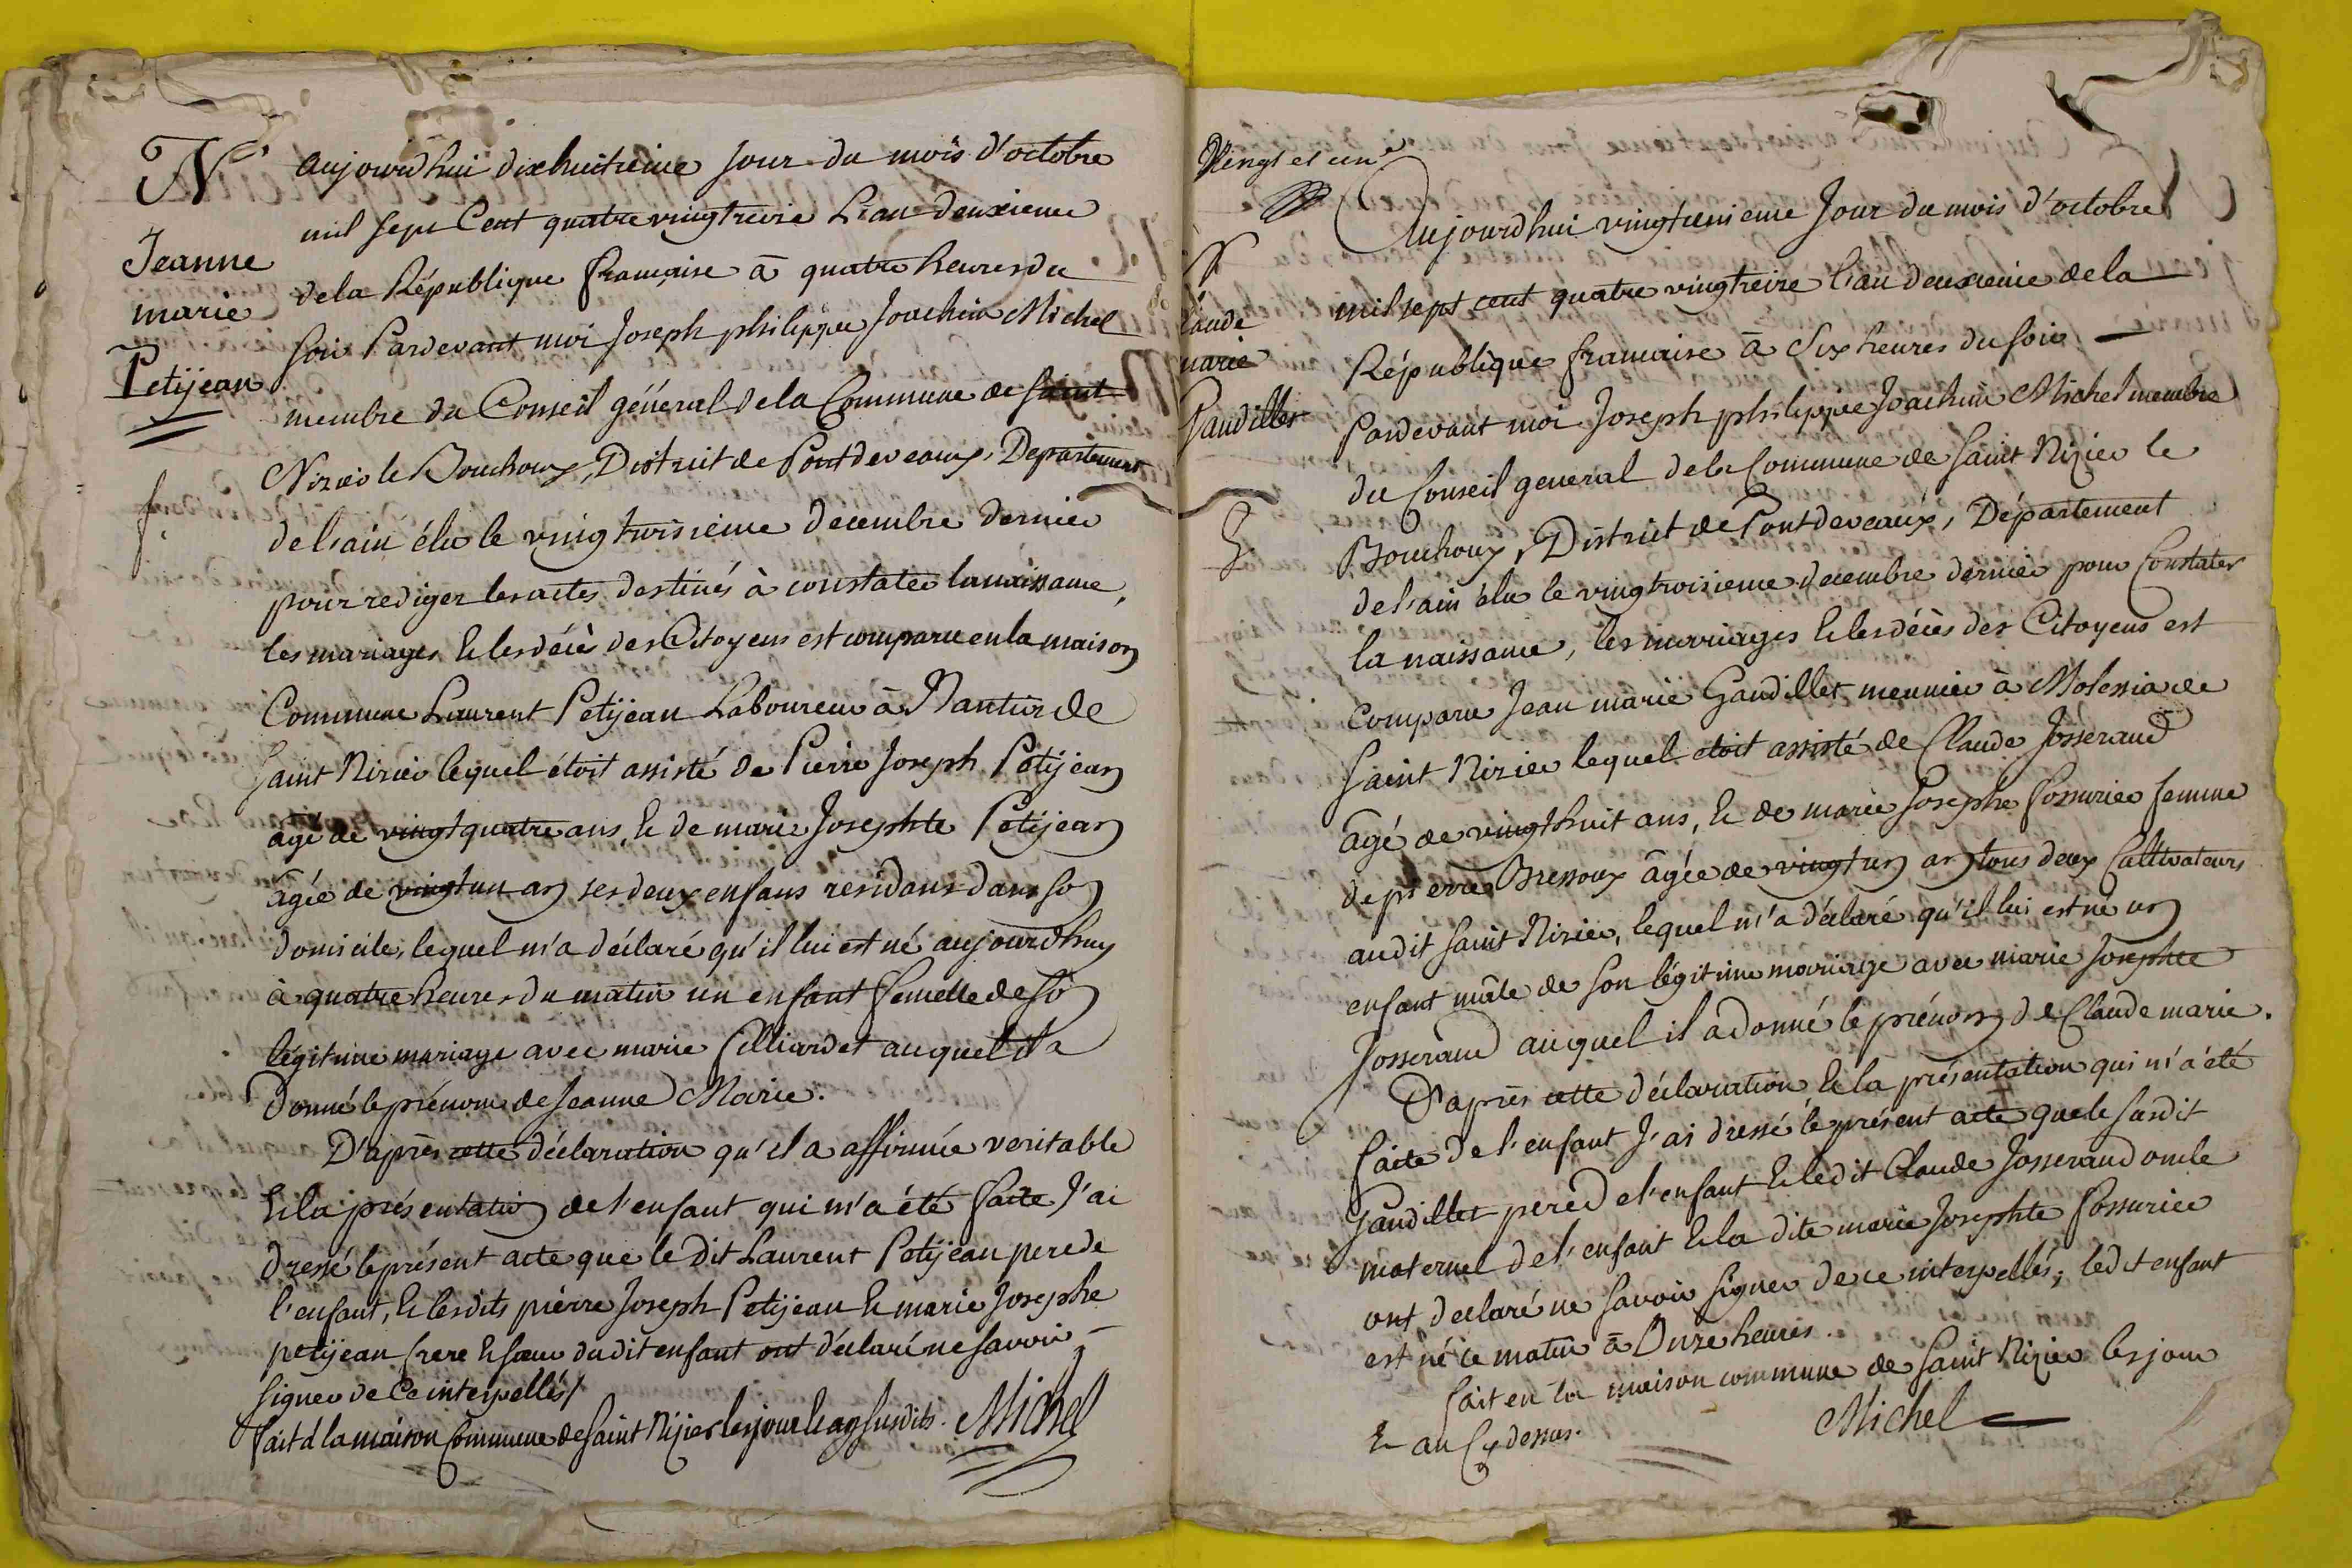 N
Jeanne
marie
Petijean
f.
Aujourdhui dixhuitieme jour du mois d'octobre
mil sept Cent quatre vingtreize L'an deuxieme
dela République française à quatre heures du
soir Pardevant moi Joseph philippe Joachim Michel
membre du Conseil général dela Commune de saint
Nizier le Bouchoux, District de Pontdeveaux, Departement
del'ain élu le vingtroisieme decembre dernier
pour rediger les actes destinés à constater la naissance,
les mariages & les décès des Citoyens est comparu en la maison
Commune Laurent Petijean Laboureur à Nantur de
Saint Nizier lequel étoit assisté de Pierre Joseph Petijean
âgé de vingt quatre ans, & de marie Josephte Petijean
âgée de vingt un an ses deux enfans residans dans son
domicile, lequel m'a déclaré qu'il lui est né aujourdhuy
à quatre heures du matin un enfant femelle de son
légitime mariage avec marie Cilliardet auquel il a
donné le prénom de Jeanne Marie.
D'après cette déclaration qu'il a affirmée veritable
& la présentation de l'enfant qui m'a été faite J'ai
dressé le présent acte que le dit Laurent Petijean pere de
l'enfant, & lesdits pierre Joseph Petijean & marie Josephe
petijean frere & soeur dudit enfant ont déclaré ne savoir
signer de ce interpellés/
fait à la maison Commune de Saint Nizier les jour & an susdits. Michel
Vingt et un
N
Claude
marie
Gaudillet
Aujourdhui vingtunieme Jour du mois d'octobre
mil sept cent quatre vingtreize l'an deuxieme de la
République francaise à Six heures du soir
Pardevant moi Joseph philippe Joachim Michel membre
du Conseil general dela Commune de Saint Nizier le
Bouchoux, District de Pontdeveaux, Département
de l'ain élu le vingtroisieme decembre dernier pour Constater
la naissance, les marriages & les décès des Citoyens est
comparu Jean marie Gaudillet meunier à Molessia de
Saint Nizier lequel étoit assisté de Claude Josserand
âgé de vingt huit ans, & de marie Josephe Fossurier femme
de pierre Bressoux âgée de vingt un an tous deux Cultivateurs
audit Saint Nizier, lequel m'a déclaré qu'il lui est né un
enfant mâle de son légitime mariage avec marie Josephte
Josserand auquel il a donné le prénom de Claude marie.
D'après cette déclaration & la présentation qui m'a été
faite de l'enfant J'ai dressé le présent acte que le susdit
Gaudillet pere de l'enfant & ledit Claude Josserand oncle
maternel de l'enfant & la dite marie Josephte Fossurier
ont declaré ne savoir signer de ce interpellés; ledit enfant
est né ce matin à Onze heures.
fait en la maison commune de Saint Nizier les jour
& an Cy dessus.
Michel